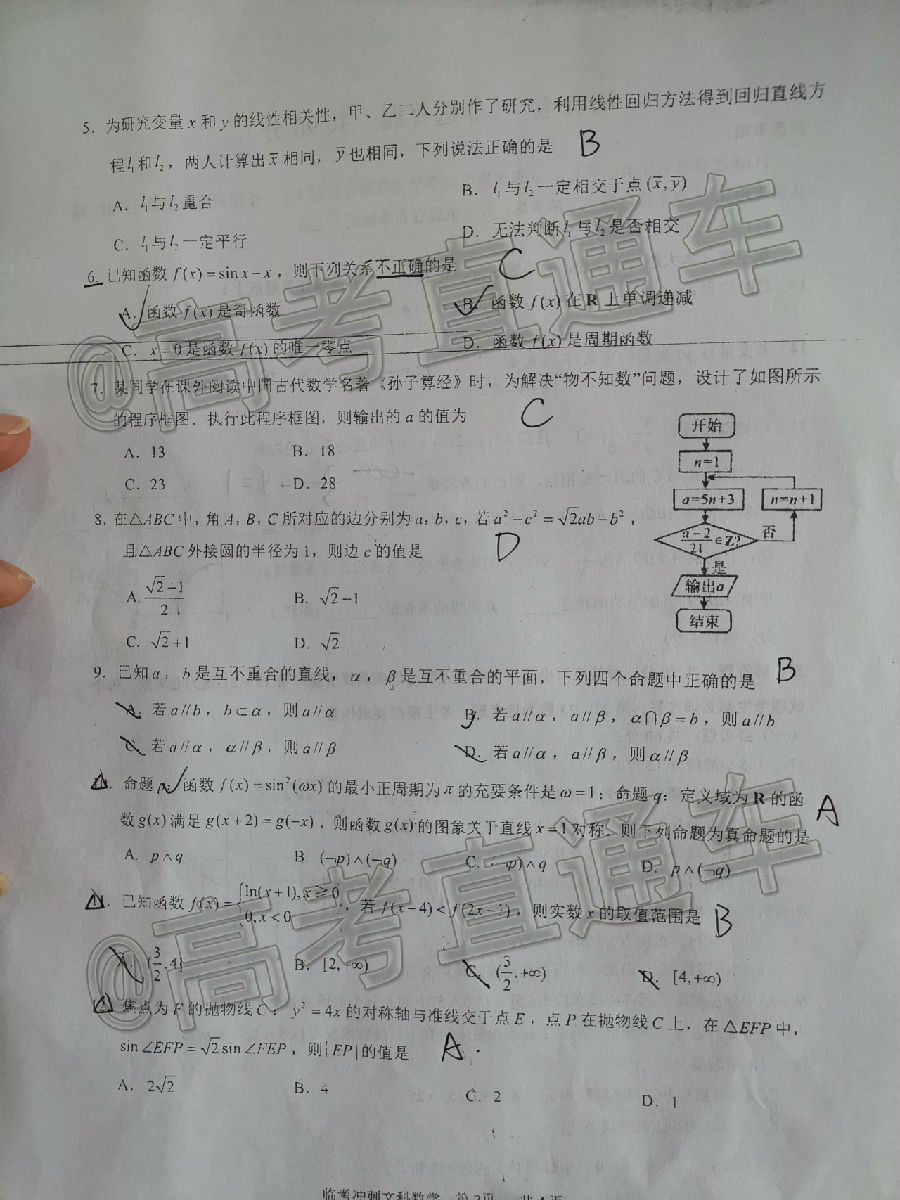 5. 为研究变量 x 和 y 的线性相关性，甲、乙二人分别作了研究．利用线性回归方法得到回归直线方
程 l₁ 和 l₂，两人计算出 x̄ 相同，ȳ 也相同，下列说法正确的是 B
A. l₁与 l₂ 重合 B. l₁与 l₂ 一定相交于点 (x̄,ȳ)
C. l₁与 l₂ 一定平行 D. 无法判断 l₁与 l₂ 是否相交
6. 已知函数 f(x)=sinx−x，则下列关系不正确的是 C
A. 函数 f(x) 是奇函数 B. 函数 f(x) 在 R 上单调递减
C. x=0 是函数 f(x) 的唯一零点 D. 函数 f(x) 是周期函数
7. 某同学在课外阅读中国古代数学名著《孙子算经》时，为解决“物不知数”问题，设计了如图所示
的程序框图．执行此程序框图，则输出的 a 的值为 C
A. 13 B. 18
C. 23 D. 28
开始
n=1
a=5n+3 n=n+1
(a−2)/21∈Z? 否
是
输出a
结束
8. 在△ABC 中，角 A，B，C 所对应的边分别为 a，b，c，若 a²−c²=√2ab−b²，
且△ABC 外接圆的半径为 1，则边 c 的值是 D
A. (√2−1)/2 B. √2−1
C. √2+1 D. √2
9. 已知 a，b 是互不重合的直线，α，β 是互不重合的平面，下列四个命题中正确的是 B
A. 若 a//b，b⊂α，则 a//α B. 若 a//α，a//β，α∩β=b，则 a//b
C. 若 a//α，α//β，则 a//β D. 若 a//α，a//β，则 α//β
命题 p：函数 f(x)=sin²(ωx) 的最小正周期为 π 的充要条件是 ω=1；命题 q：定义域为 R 的函
数 g(x) 满足 g(x+2)=g(−x)，则函数 g(x) 的图象关于直线 x=1 对称．则下列命题为真命题的是 A
A. p∧q B. (¬p)∧(¬q) C. (¬p)∧q D. p∧(¬q)
已知函数 f(x)={ln(x+1),x≥0
0,x<0，若 f(x−4)<f(2x−3)，则实数 x 的取值范围是 B
A. (3/2,4) B. [2,+∞) C. (3/2,+∞) D. [4,+∞)
焦点为 F 的抛物线 C：y²=4x 的对称轴与准线交于点 E，点 P 在抛物线 C 上，在 △EFP 中，
sin∠EFP=√2sin∠FEP，则|EP|的值是 A
A. 2√2 B. 4 C. 2 D. 1
临考冲刺文科数学
@高考直通车
@高考直通车